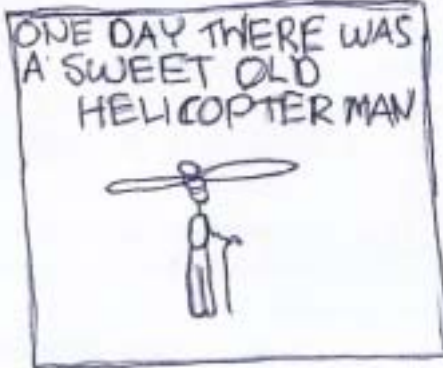 ONE DAY THERE WAS
A SWEET OLD
HELICOPTER MAN